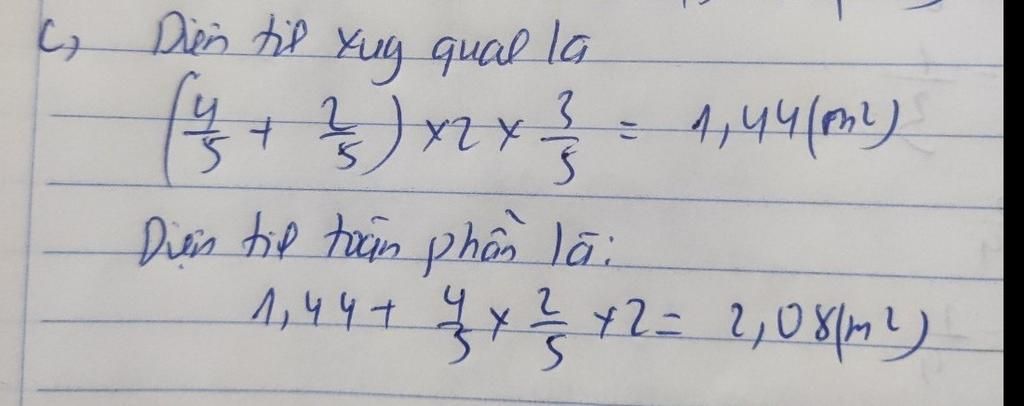 c, Diện típ xug quap là
(4/5 + 2/5) × 2 × 3/5 = 1,44 (m²)
Diện típ toàn phần là:
1,44 + 4/5 × 2/5 × 2 = 2,08 (m²)